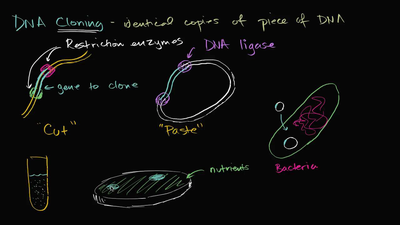 DNA Cloning - identical copies of piece of DNA
Restriction enzymes
DNA ligase
gene to clone
"Cut"
"Paste"
nutrients
Bacteria